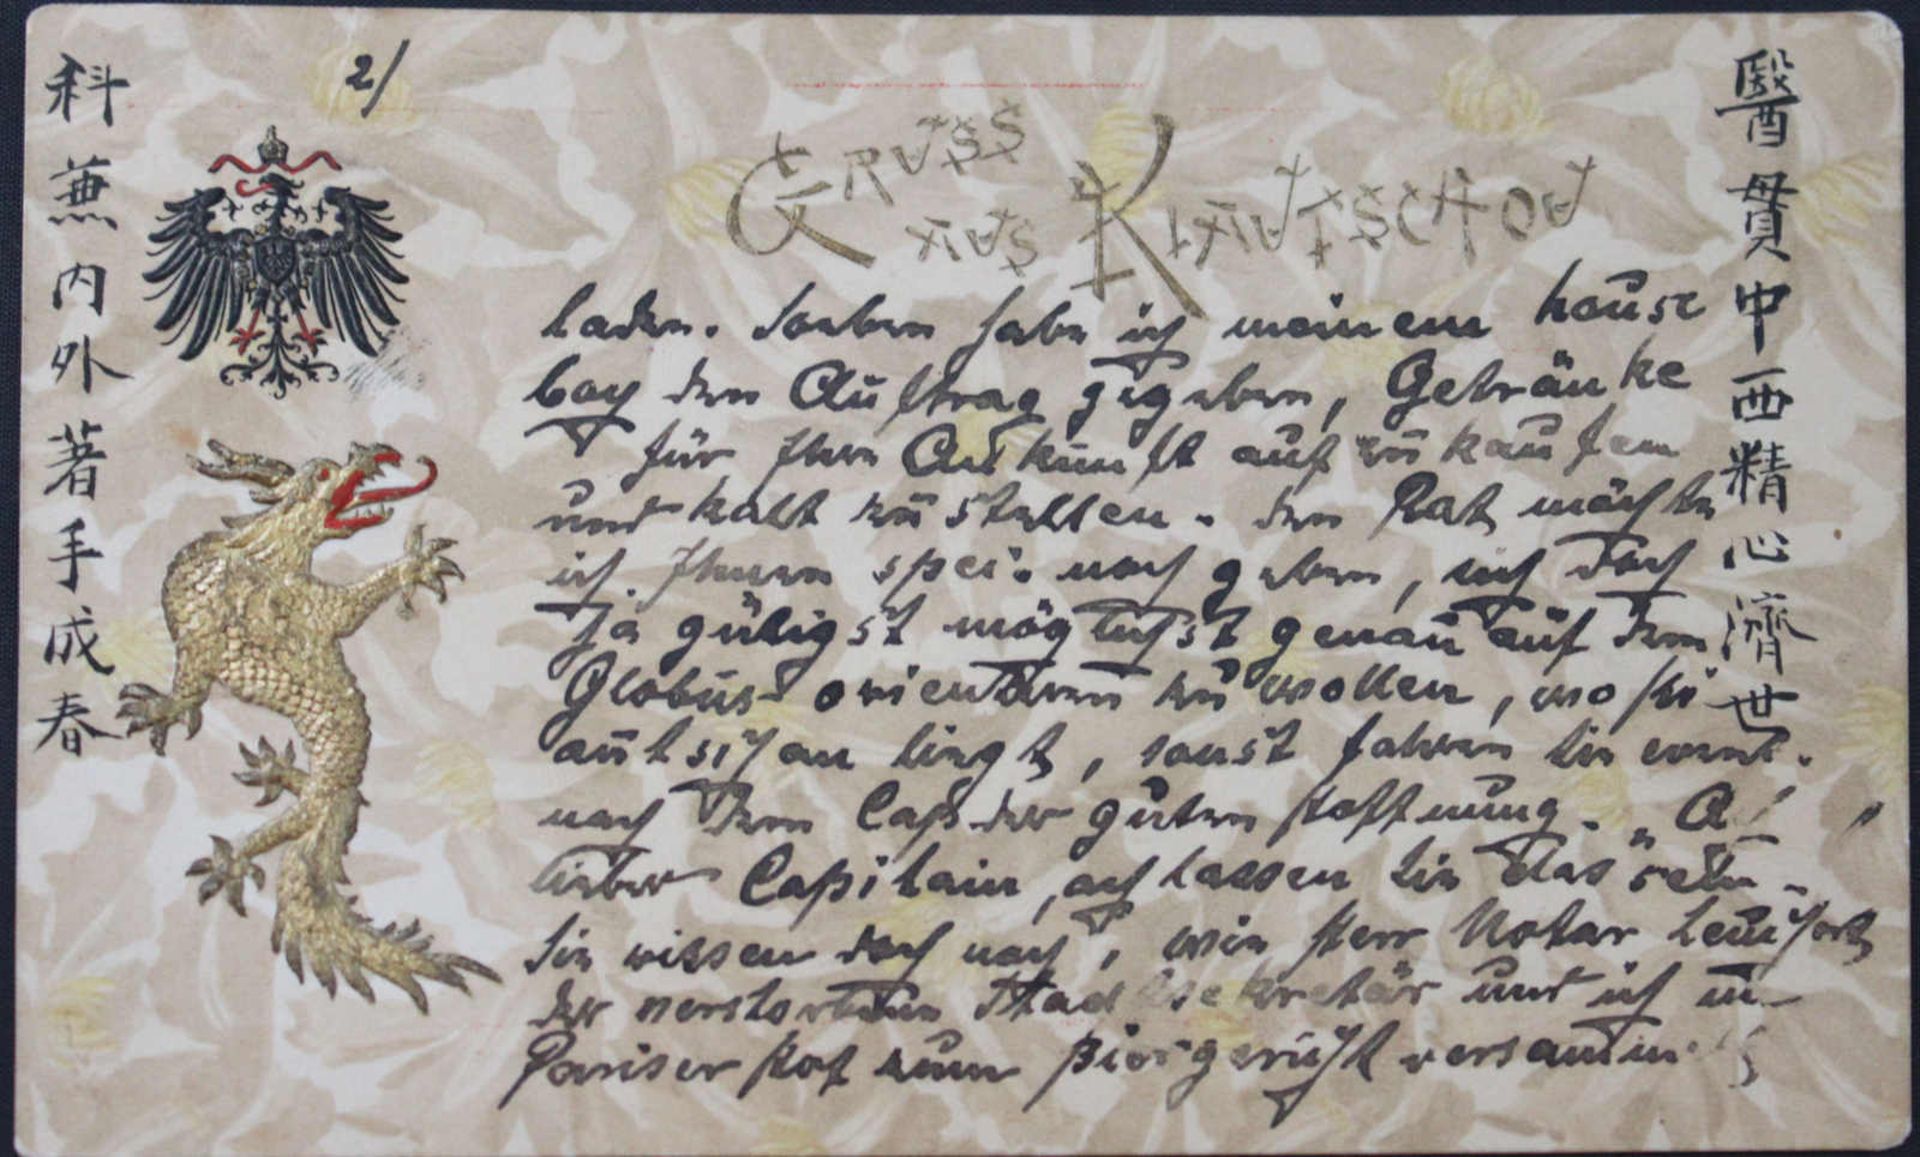 2/
GRUSS
AUS KIAUTSCHOU
醫貫中西精心濟世
科兼內外著手成春
laden. Soeben habe ich meinem House
boy den Auftrag gegeben, Getränke
für Ihre Ankunft auf zu kaufen
und kalt zu stellen. Den Rat möchte
ich Ihnen spei. noch geben, sich doch
ja gütigst möglichst genau auf dem
Globus orientieren zu wollen, wo hi
autschou liegt, sonst fahren Sie event.
nach dem Cap der guten Hoffnung. „
lieber Capitain, ach lassen Sie das sein.
Sie wissen doch noch, wie Herr Notar
der verstorbene Stadtsekretär und ich im
Pariser Hof zum Biergericht versammelt